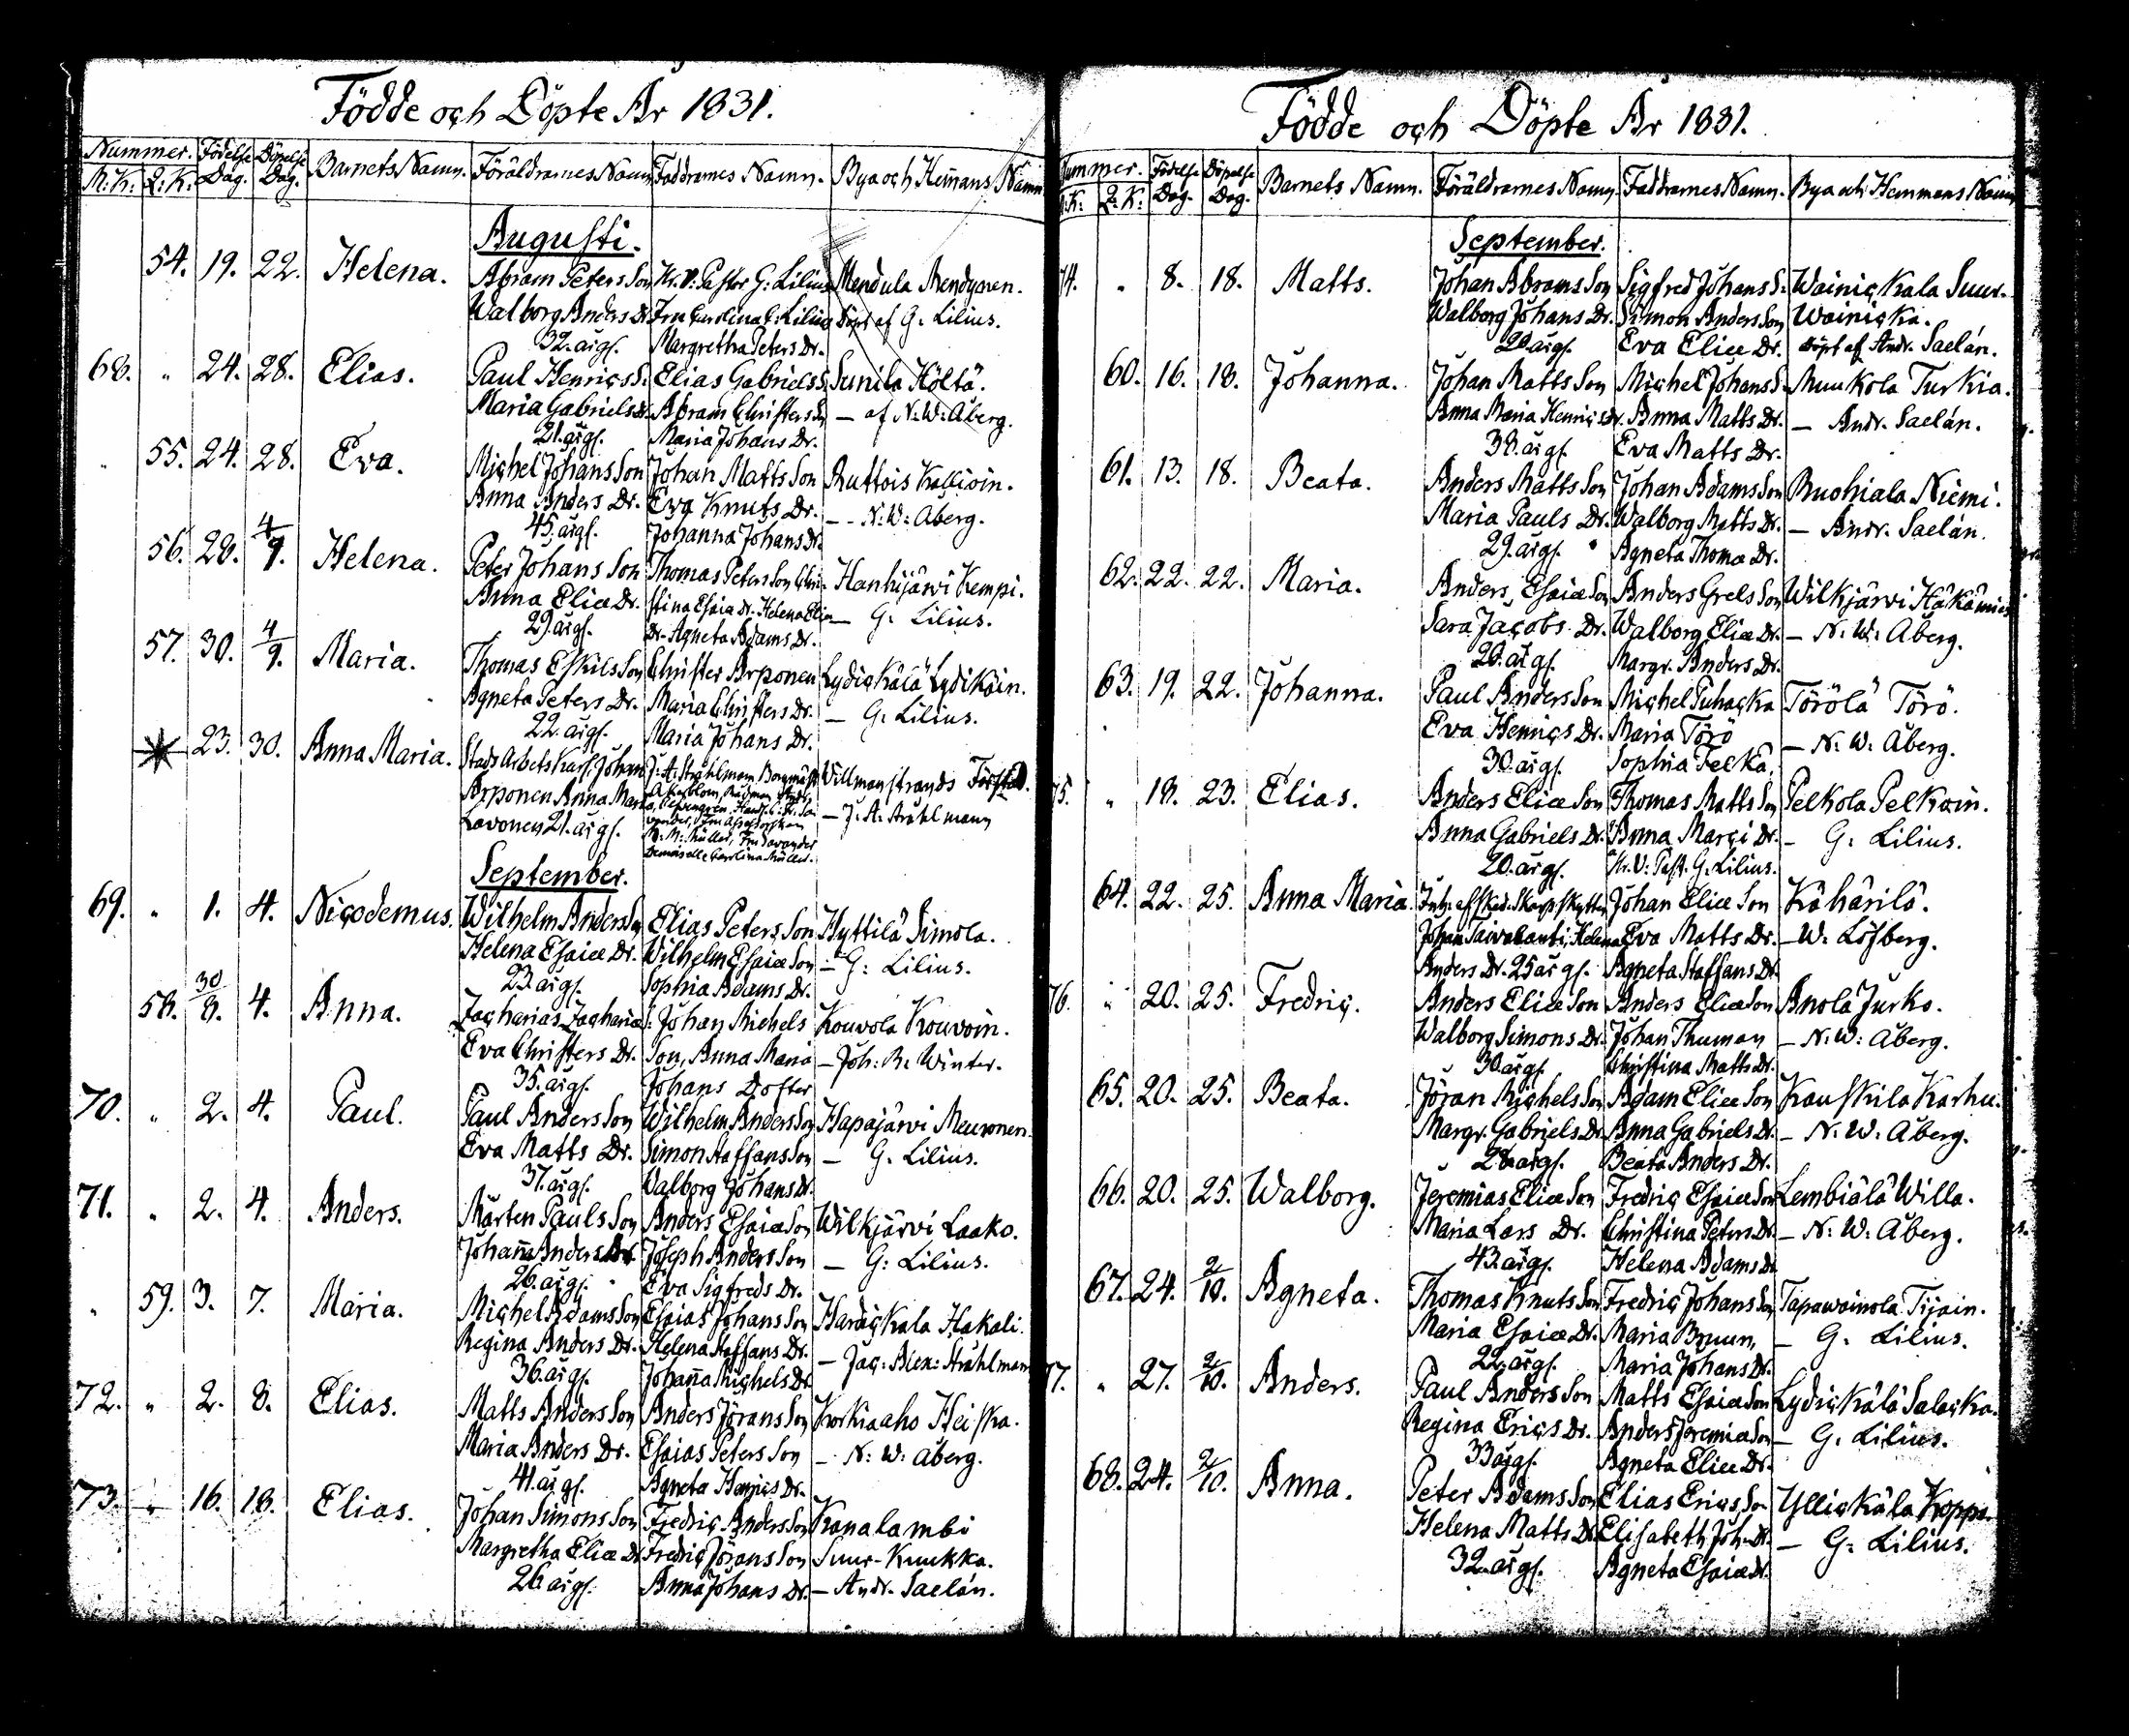 Födde och Döpte År 1831.
Nummer. Födelse Döpelse Barnets Namn. Föräldrarnes Namn Faddrarnes Namn. Bya och Hem̄ans Namn
M:K: Q:K: Dag. Dag.
Augusti.
54. 19. 22. Helena. Abram Peters Son Kr. V: Pastor G: Lilius Mendula Mendynen.
Walborg Anders Dr. Fru Carolina C: Lilius Döpt af G. Lilius.
32. årgl. Margretha Peters Dr.
68. " 24. 28. Elias. Paul Henrics S: Elias Gabriels S: Sunila Höltä.
Maria Gabriels Dr. Abram Christers Son — af N: W: Åberg.
21. årgl. Maria Johans Dr.
" 55. 24. 28. Eva. Michel Johans Son Johan Matts Son Ruttois Kallioin.
Anna Anders Dr. Eva Knuts Dr. — N: W: Åberg.
45. årgl. Johanna Johans Dr.
56. 28. 4/9. Helena. Peter Johans Son Thomas Peters Son, Chri- Hanhijärvi Kempi.
Anna Eliæ Dr. stina Esaiæ Dr. Helena Eliæ — G. Lilius.
29. årgl. Dr. Agneta Adams Dr.
57. 30. 4/9. Maria. Thomas Eskils Son Christer Arponen Lydickälä Lydikäin.
Agneta Peters Dr. Maria Christers Dr. — G. Lilius.
22. årgl. Maria Johans Dr.
23. 30. Anna Maria. Stads Arbets Karl, Johan J: A: Strahlmann, Borgmäst. Villmanstrands Förstad.
Arponen Anna Maria — J. A. Strahlmann
Lavonen 21. årgl. M: M: Müller, Fru Savander
Demoiselle Carolina Müller.
September.
69. " 1. 4. Nicodemus. Wilhelm Anders Son Elias Peters Son Hyttilä Simola.
Helena Esaiæ Dr. Wilhelm Esaiæ Son — G: Lilius.
23. årgl. Sophia Adams Dr.
58. 30/8. 4. Anna. Zacharias Zachariæ S: Johan Michels Kouvola Kouvoin.
Eva Christers Dr. Son, Anna Maria — Joh: R: Winter.
35. årgl. Johans Dotter
70. " 2. 4. Paul. Paul Anders Son Wilhelm Anders Son Hapajärvi Meuronen.
Eva Matts Dr. Simon Staffans Son — G. Lilius.
37. årgl. Walborg Johans Dr.
71. " 2. 4. Anders. Mårten Pauls Son Anders Esaiæ Son Wilkjärvi Laako.
Johan̄a Anders Dr. Joseph Anders Son — G: Lilius.
26. årgl. Eva Sigfreds Dr.
" 59. 3. 7. Maria. Michel Adams Son Esaias Johans Son Haraickala Hakali.
Regina Anders Dr. Helena Staffans Dr. — Jac: Alex: Strahlmann
36. årgl. Johan̄a Michels Dr.
72. " 2. 8. Elias. Matts Anders Son Anders Jörans Son Korkiaaho Heiska.
Maria Anders Dr. Esaias Peters Son — N: W: Åberg.
41. årgl. Agneta Henrics Dr.
73. " 16. 18. Elias. Johan Simons Son Fredric Anders Son Kanalambi
Margretha Eliæ Dr. Fredric Jörans Son Suur-Kuukka.
26. årgl. Anna Johans Dr. — Andr. Saelán.
Födde och Döpte År 1831.
Nummer. Födelse Döpelse Barnets Namn. Föräldrarnes Namn. Faddrarnes Namn. Bya och Hemmans Namn
M:K: Q:K: Dag. Dag.
September.
74. " 8. 18. Matts. Johan Abrams Son Sigfred Johans S: Wainickala Suur-
Walborg Johans Dr. Simon Anders Son Wainicka.
20. årgl. Eva Eliæ Dr. Döpt af Andr. Saelán.
60. 16. 18. Johanna. Johan Matts Son Michel Johans S. Muukola Turkia.
Anna Maria Henrics Dr. Anna Matts Dr. — Andr. Saelán.
38. årgl. Eva Matts Dr.
61. 13. 18. Beata. Anders Matts Son Johan Adams Son Ruohiala Niemi.
Maria Pauls Dr. Walborg Matts Dr. — Andr. Saelán.
29. årgl. Agneta Thomæ Dr.
62. 22. 22. Maria. Anders Esaiæ Son Anders Grels Son Wilkjärvi Häkämies
Sara Jacobs Dr. Walborg Eliæ Dr. — N: W: Åberg.
20. årgl. Margr. Anders Dr.
63. 19. 22. Johanna. Paul Anders Son Michel Puhacka Törölä Törö.
Eva Henrics Dr. Maria Törö — N: W: Åberg.
30. årgl. Sophia Felka.
75. " 18. 23. Elias. Anders Eliæ Son Thomas Matts Son Pelkola Pelkoin.
Anna Gabriels Dr. Anna Marci Dr. — G: Lilius.
20. årgl. Kr. V: Past. G. Lilius.
64. 22. 25. Anna Maria. Inh: afsked. Skarpskytten Johan Eliæ Son Kähärilä.
Johan Taivalanti, Helena Eva Matts Dr. — W. Löfberg.
Anders Dr. 25 årgl. Agneta Staffans Dr.
76. " 20. 25. Fredric. Anders Eliæ Son Anders Eliæ Son Anola Jurko.
Walborg Simons Dr. Johan Thuman — N: W: Åberg.
30. årgl. Christina Matts Dr.
65. 20. 25. Beata. Jöran Michels Son Adam Eliæ Son Kauskila Karhu.
Margr. Gabriels Dr. Anna Gabriels Dr. — N: W: Åberg.
28. årgl. Beata Anders Dr.
66. 20. 25. Walborg. Jeremias Eliæ Son Fredric Esaiæ Son Lembiälä Willa.
Maria Lars Dr. Christina Peters Dr. — N: W: Åberg.
43. årgl. Helena Adams Dr.
67. 24. 2/10. Agneta. Thomas Knuts Son Fredric Johans Son Tapawainola Tijain.
Maria Esaiæ Dr. Maria Bruun, — G: Lilius.
22. årgl. Maria Johans Dr.
77. " 27. 2/10. Anders. Paul Anders Son Matts Esaiæ Son Lydickälä Salacka.
Regina Erics Dr. Anders Jeremiæ Son — G. Lilius.
33 årgl. Agneta Eliæ Dr.
68. 24. 2/10. Anna. Peter Adams Son Elias Erics Son Yllickälä Koppi.
Helena Matts Dr. Elisabeth Joh. Dr. — G: Lilius.
32. årgl. Agneta Esaiæ Dr.